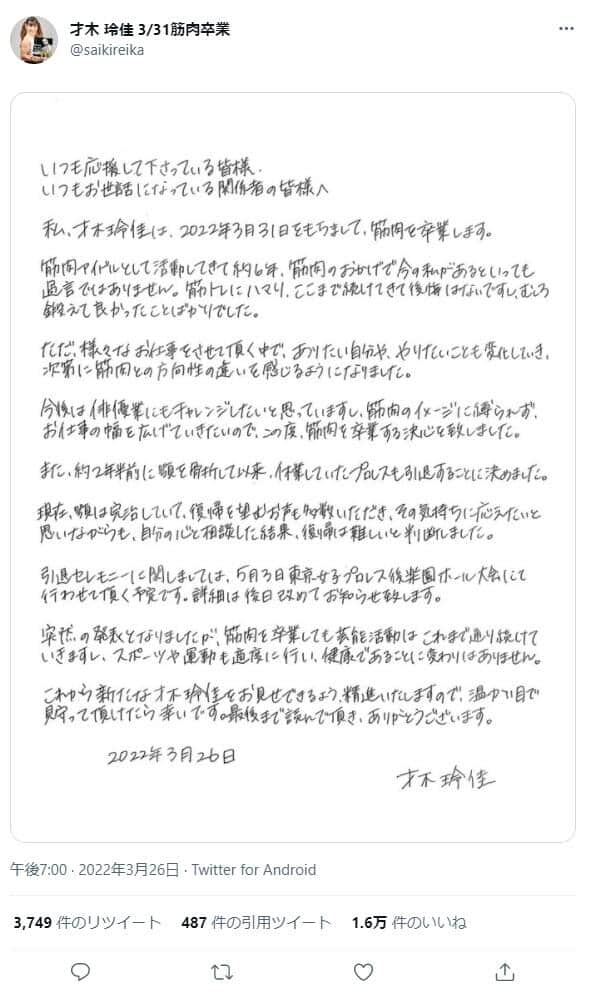 才木 玲佳 3/31筋肉卒業
@saikireika
いつも応援して下さっている皆様、
いつもお世話になっている関係者の皆様へ
私、才木玲佳は、2022年3月31日をもちまして、筋肉を卒業します。
筋肉アイドルとして活動してきて約6年、筋肉のおかげで今の私があるといっても
過言ではありません。筋トレにハマり、ここまで続けてきて後悔はないですし、むしろ
鍛えて良かったことばかりでした。
ただ、様々なお仕事をさせて頂く中で、ありたい自分や、やりたいことも変化していき、
次第に筋肉との方向性の違いを感じるようになりました。
今後は俳優業にもチャレンジしたいと思っていますし、筋肉のイメージに縛られず、
お仕事の幅を広げていきたいので、この度、筋肉を卒業する決心を致しました。
また、約2年半前に顎を骨折して以来、休業していたプロレスも引退することに決めました。
現在、顎は完治していて、復帰を望むお声も多数いただき、その気持ちに応えたいと
思いながらも、自分の心と相談した結果、復帰は難しいと判断しました。
引退セレモニーに関しましては、5月3日東京女子プロレス後楽園ホール大会にて
行わせて頂く予定です。詳細は後日改めてお知らせ致します。
突然の発表となりましたが、筋肉を卒業しても芸能活動はこれまで通り続けて
いきますし、スポーツや運動も適度に行い、健康であることに変わりはありません。
これから新たな才木玲佳をお見せできるよう、精進いたしますので、温かい目で
見守って頂けたら幸いです。最後まで読んで頂き、ありがとうございます。
2022年3月26日
才木玲佳
午後7:00 · 2022年3月26日 · Twitter for Android
3,749 件のリツイート 487 件の引用ツイート 1.6万 件のいいね